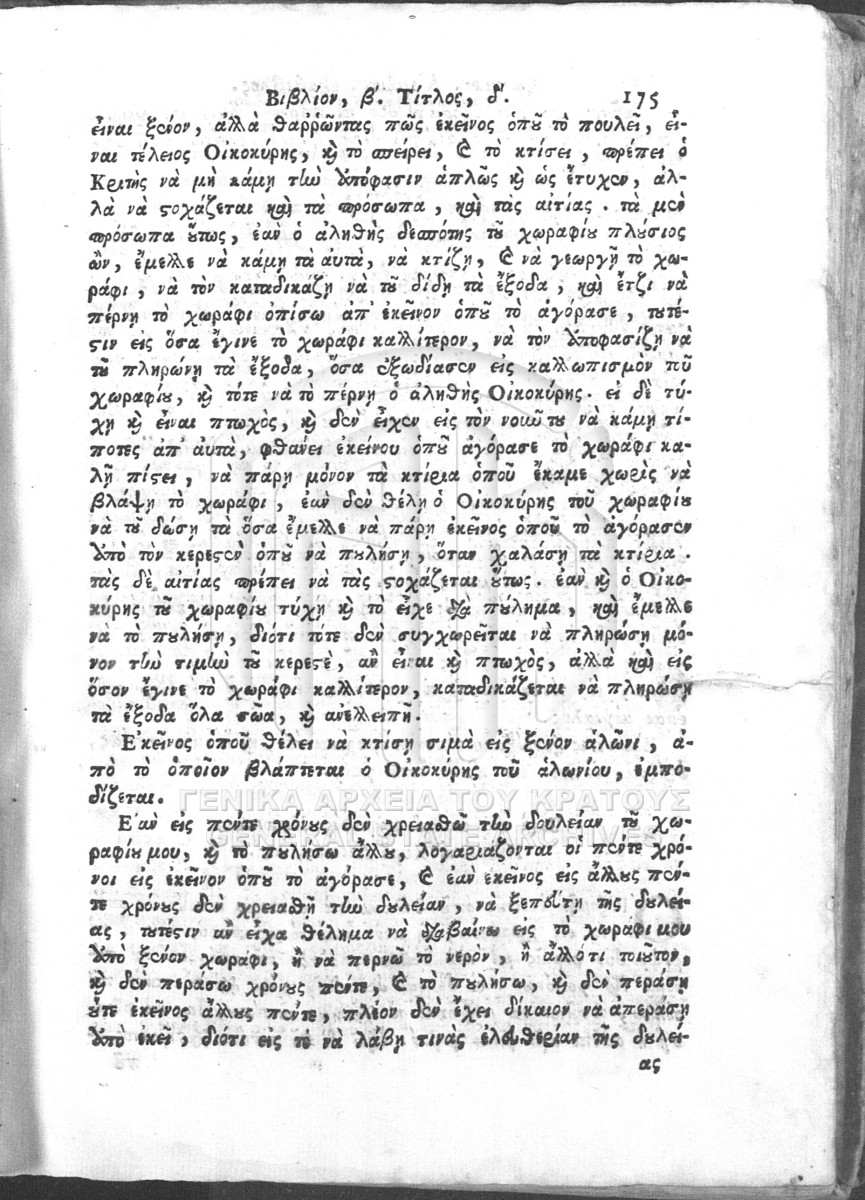 Βιβλίον, β'. Τίτλος, δ'. 175
εἶναι ξένον, ἀλλὰ θαῤῥῶντας πῶς ἐκεῖνος ὁποῦ τὸ πουλεῖ, εἶ-
ναι τέλειος Οἰκοκύρης, καὶ τὸ σπείρει, καὶ τὸ κτίσει, πρέπει ὁ
Κριτὴς νὰ μὴ κάμῃ τὴν ἀπόφασιν ἁπλῶς καὶ ὡς ἔτυχεν, ἀλ-
λὰ νὰ στοχάζεται καὶ τὰ πρόσωπα, καὶ τὰς αἰτίας. τὰ μὲν
πρόσωπα οὕτως, ἐὰν ὁ ἀληθὴς δεσπότης τοῦ χωραφίου πλούσιος
ὢν, ἔμελλε νὰ κάμῃ τὰ αὐτὰ, νὰ κτίζῃ, καὶ νὰ γεωργῇ τὸ χω-
ράφι, νὰ τὸν καταδικάζῃ νὰ τοῦ δίδῃ τὰ ἔξοδα, καὶ ἔτζι νὰ
πέρνῃ τὸ χωράφι ὀπίσω ἀπ' ἐκεῖνον ὁποῦ τὸ ἀγόρασε, τουτέ-
στιν εἰς ὅσα ἔγινε τὸ χωράφι καλλίτερον, νὰ τὸν ἀποφασίζῃ νὰ
τοῦ πληρώνῃ τὰ ἔξοδα, ὅσα ἐξωδίασεν εἰς καλλωπισμὸν τοῦ
χωραφίου, καὶ τότε νὰ τὸ πέρνῃ ὁ ἀληθὴς Οἰκοκύρης. εἰ δὲ τύ-
χῃ καὶ εἶναι πτωχὸς, καὶ δὲν εἶχεν εἰς τὸν νοῦν του νὰ κάμῃ τί-
ποτες ἀπ' αὐτὰ, φθάνει ἐκείνου ὁποῦ ἀγόρασε τὸ χωράφι κα-
λῇ πίστει, νὰ πάρῃ μόνον τὰ κτίρια ὁποῦ ἔκαμε χωρὶς νὰ
βλάψῃ τὸ χωράφι, ἐὰν δὲν θέλῃ ὁ Οἰκοκύρης τοῦ χωραφίου
νὰ τοῦ δώσῃ τὰ ὅσα ἔμελλε νὰ πάρῃ ἐκεῖνος ὁποῦ τὸ ἀγόρασεν
ἀπὸ τὸν κερεστὲν ὁποῦ νὰ πουλήσῃ, ὅταν χαλάσῃ τὰ κτίρια.
τὰς δὲ αἰτίας πρέπει νὰ τὰς στοχάζεται οὕτως. ἐὰν καὶ ὁ Οἰκο-
κύρης τοῦ χωραφίου τύχῃ καὶ τὸ εἶχε διὰ πούλημα, καὶ ἔμελλε
νὰ τὸ πουλήσῃ, διότι τότε δὲν συγχωρεῖται νὰ πληρώσῃ μό-
νον τὴν τιμὴν τοῦ κερεστὲ, ἂν εἶναι καὶ πτωχὸς, ἀλλὰ καὶ εἰς
ὅσον ἔγινε τὸ χωράφι καλλίτερον, καταδικάζεται νὰ πληρώσῃ
τὰ ἔξοδα ὅλα σῶα, καὶ ἀνελλειπῆ.
Ἐκεῖνος ὁποῦ θέλει νὰ κτίσῃ σιμὰ εἰς ξένον ἁλῶνι, ἀ-
πὸ τὸ ὁποῖον βλάπτεται ὁ Οἰκοκύρης τοῦ ἁλωνίου, ἐμπο-
δίζεται.
ΓΕΝΙΚΑ ΑΡΧΕΙΑ ΤΟΥ ΚΡΑΤΟΥΣ
Ἐὰν εἰς πέντε χρόνους δὲν χρειασθῶ τὴν δουλείαν τοῦ χω-
GENERAL STATE ARCHIVES
ραφίου μου, καὶ τὸ πουλήσω ἄλλου, λογαριάζονται οἱ πέντε χρό-
νοι εἰς ἐκεῖνον ὁποῦ τὸ ἀγόρασε, καὶ ἐὰν ἐκεῖνος εἰς ἄλλους πέν-
τε χρόνους δὲν χρειασθῇ τὴν δουλείαν, νὰ ξεπέφτῃ τῆς δουλεί-
ας, τουτέστιν ἂν εἶχα θέλημα νὰ διαβαίνω εἰς τὸ χωράφι μου
ἀπὸ ξένον χωράφι, ἢ νὰ περνῶ τὸ νερὸν, ἢ ἄλλότι τοιοῦτον,
καὶ δὲν περάσω χρόνους πέντε, καὶ τὸ πουλήσω, καὶ δὲν περάσῃ
οὔτε ἐκεῖνος ἄλλους πέντε, πλέον δὲν ἔχει δίκαιον νὰ ἀπεράσῃ
ἀπὸ ἐκεῖ, διότι εἰς τὸ νὰ λάβῃ τινὰς ἐλευθερίαν τῆς δουλεί-
ας